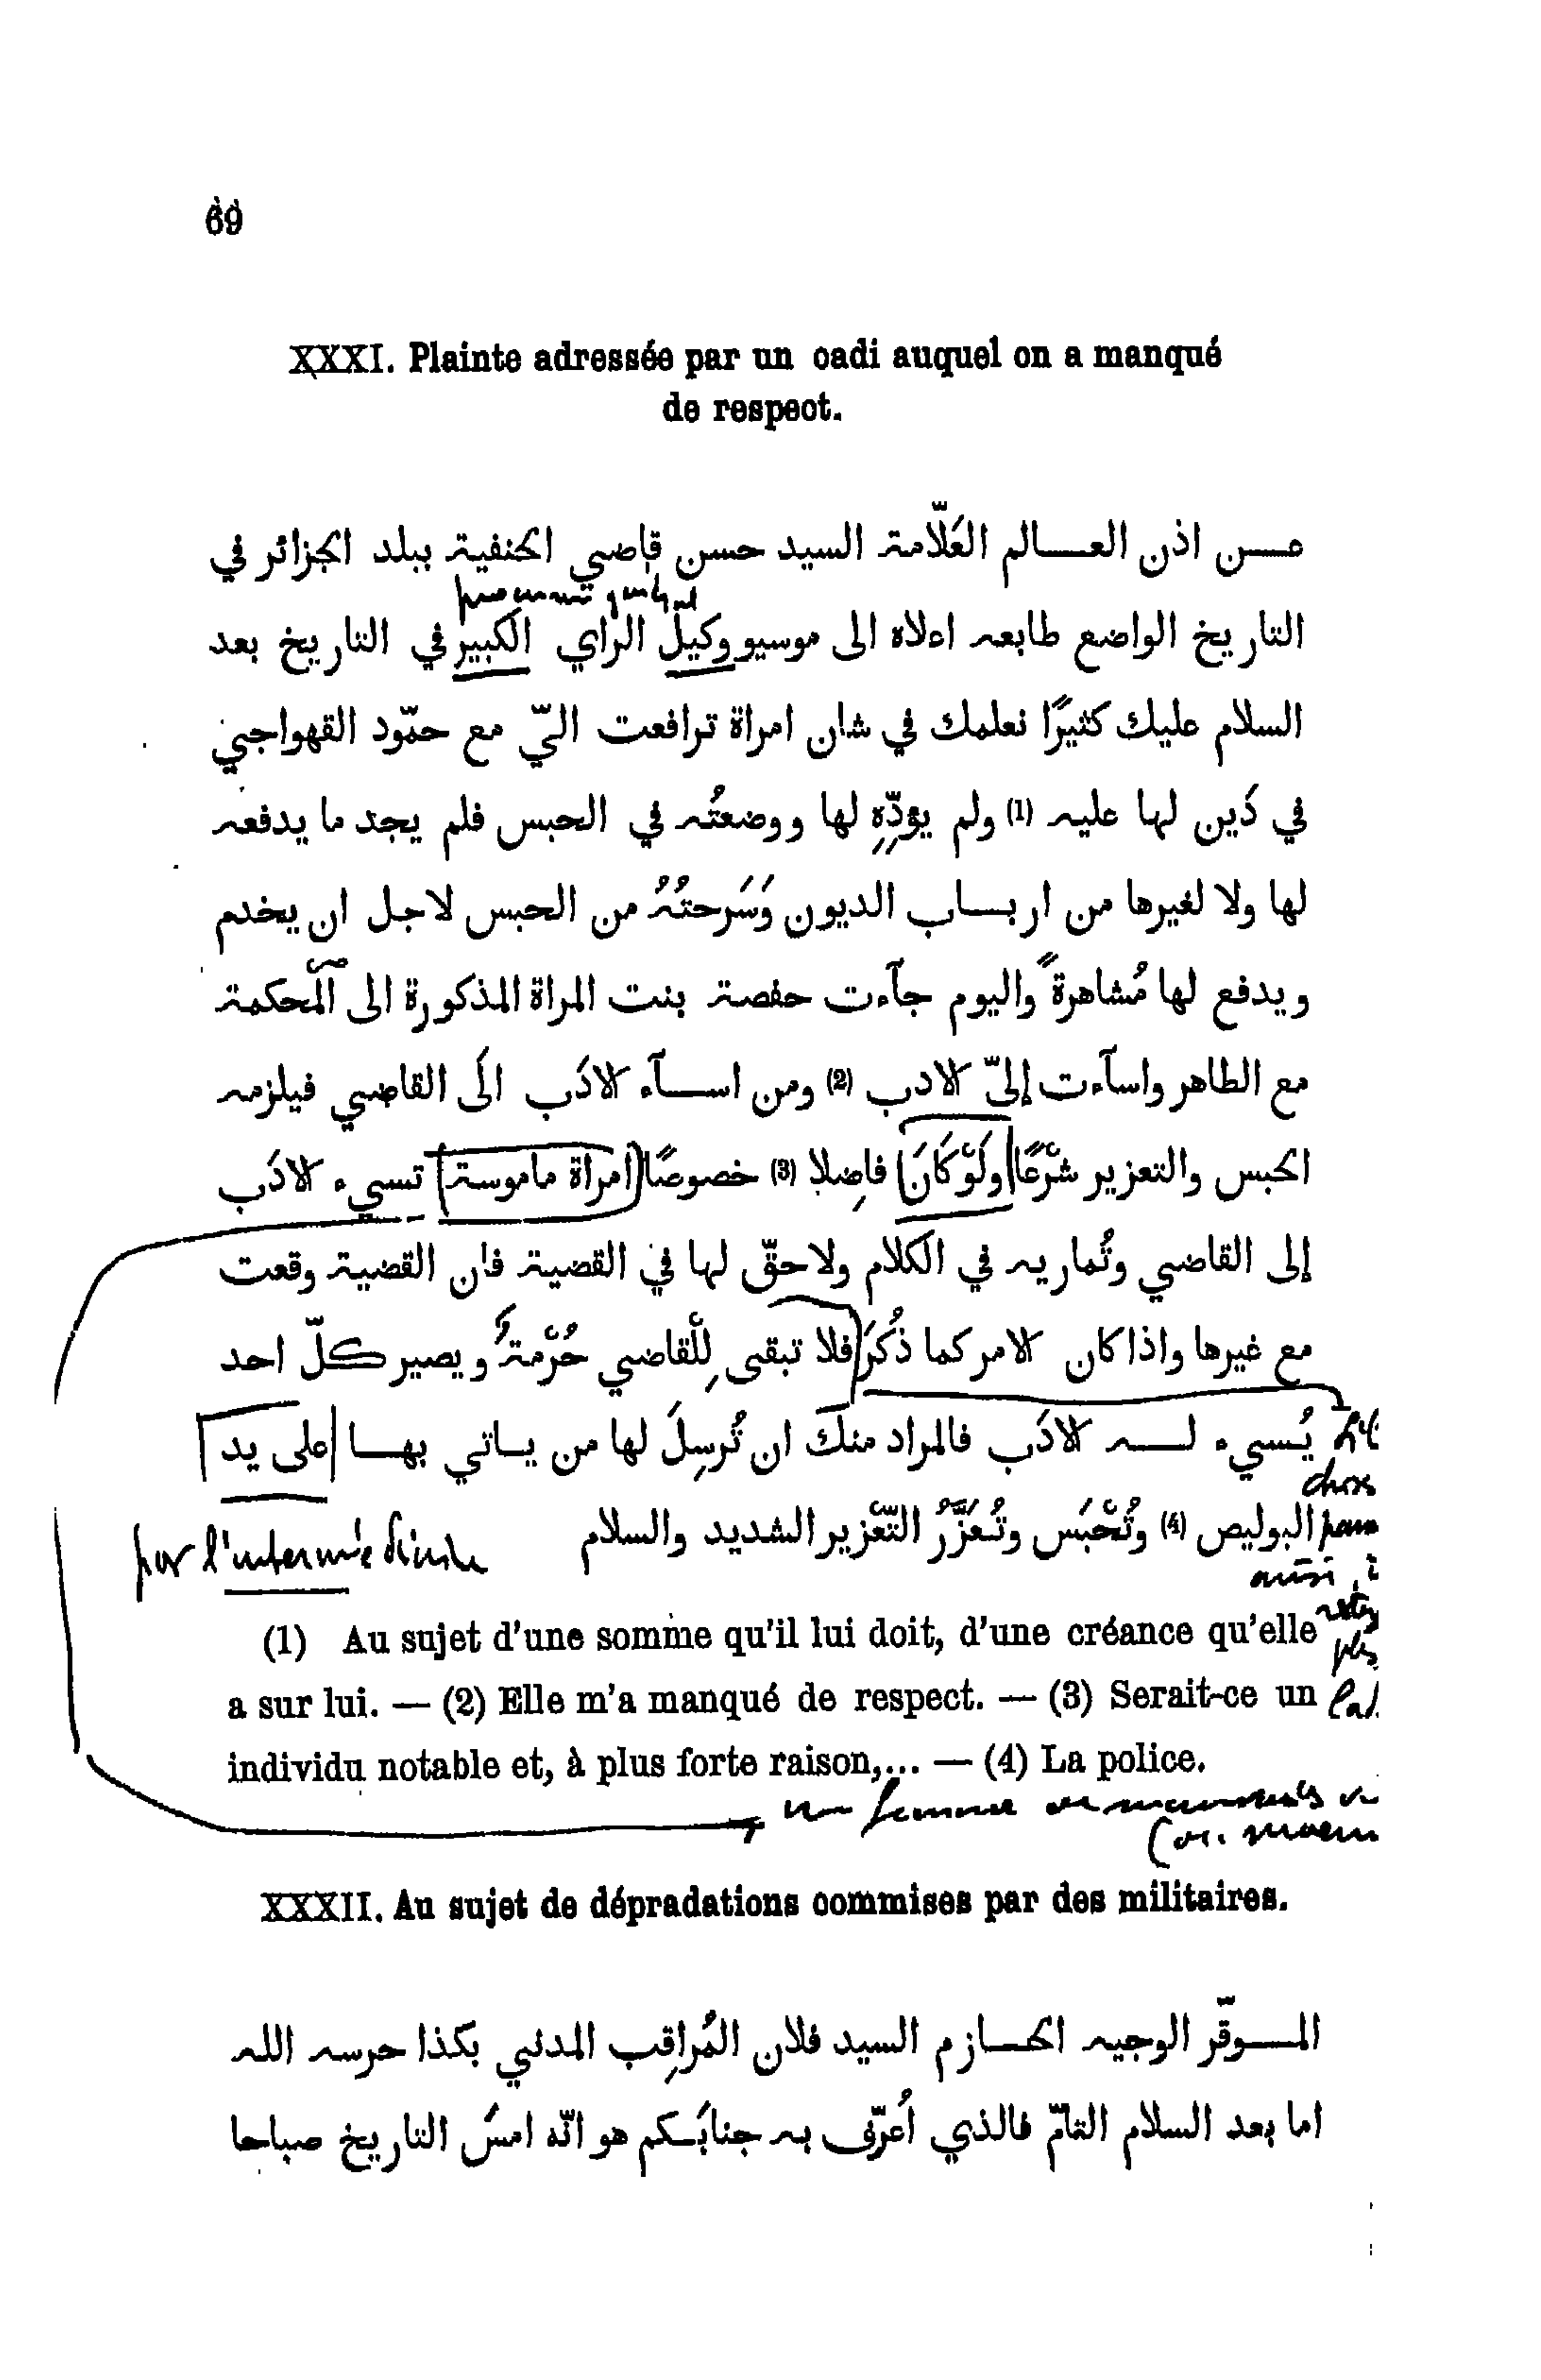 69
XXXI. Plainte adressée par un cadi auquel on a manqué
de respect.
عن اذن العالم العَلّامة السيد حسن قاضي الحنفية ببلد الجزائر في
التاريخ الواضع طابعه اعلاه الى موسيو وكيل الراي الكبير في التاريخ بعد
السلام عليك كثيرًا نعلمك في شان امراة ترافعت اليّ مع حمّود القهواجي
في دَين لها عليه (1) ولم يودِّهِ لها ووضعتُه في الحبس فلم يجد ما يدفعه
لها ولا لغيرها من ارباب الديون وَسَرحتُهُ من الحبس لاجل ان يخدم
ويدفع لها مُشاهرةً واليوم جآءت حفصة بنت المراة المذكورة الى المحكمة
مع الطاهر واسآءت إليّ الادب (2) ومن اسآء الادَب الَى القاضي فيلزمه
الحبس والتعزير شرْعًا ولَوْ كَانَ فاضِلا (3) خصوصًا امراة ماموسة تسيء الادَب
إلى القاضي وتُماريه في الكلام ولا حقّ لها في القضية فان القضية وقعت
مع غيرها واذا كان الامر كما ذُكَرَ فلا تبقى لِلْقاضي حُرْمةٌ ويصير كلّ احد
يُسيء له الادَب فالمراد منكَ ان تُرسِلَ لها من ياتي بها على يد
البوليص (4) وتُحْبَس وتُعَزَّرُ التّعْزير الشديد والسلام
par l'intermédiaire
(1) Au sujet d'une somme qu'il lui doit, d'une créance qu'elle
a sur lui. — (2) Elle m'a manqué de respect. — (3) Serait-ce un
individu notable et, à plus forte raison,... — (4) La police.
femme
XXXII. Au sujet de dépradations commises par des militaires.
الموقّر الوجيه الحازم السيد فلان المُراقِب المدني بكذا حرسه الله
اما بعد السلام التامّ فالذي أُعرّف به جنابَكم هو انّه امسَ التاريخ صباحا